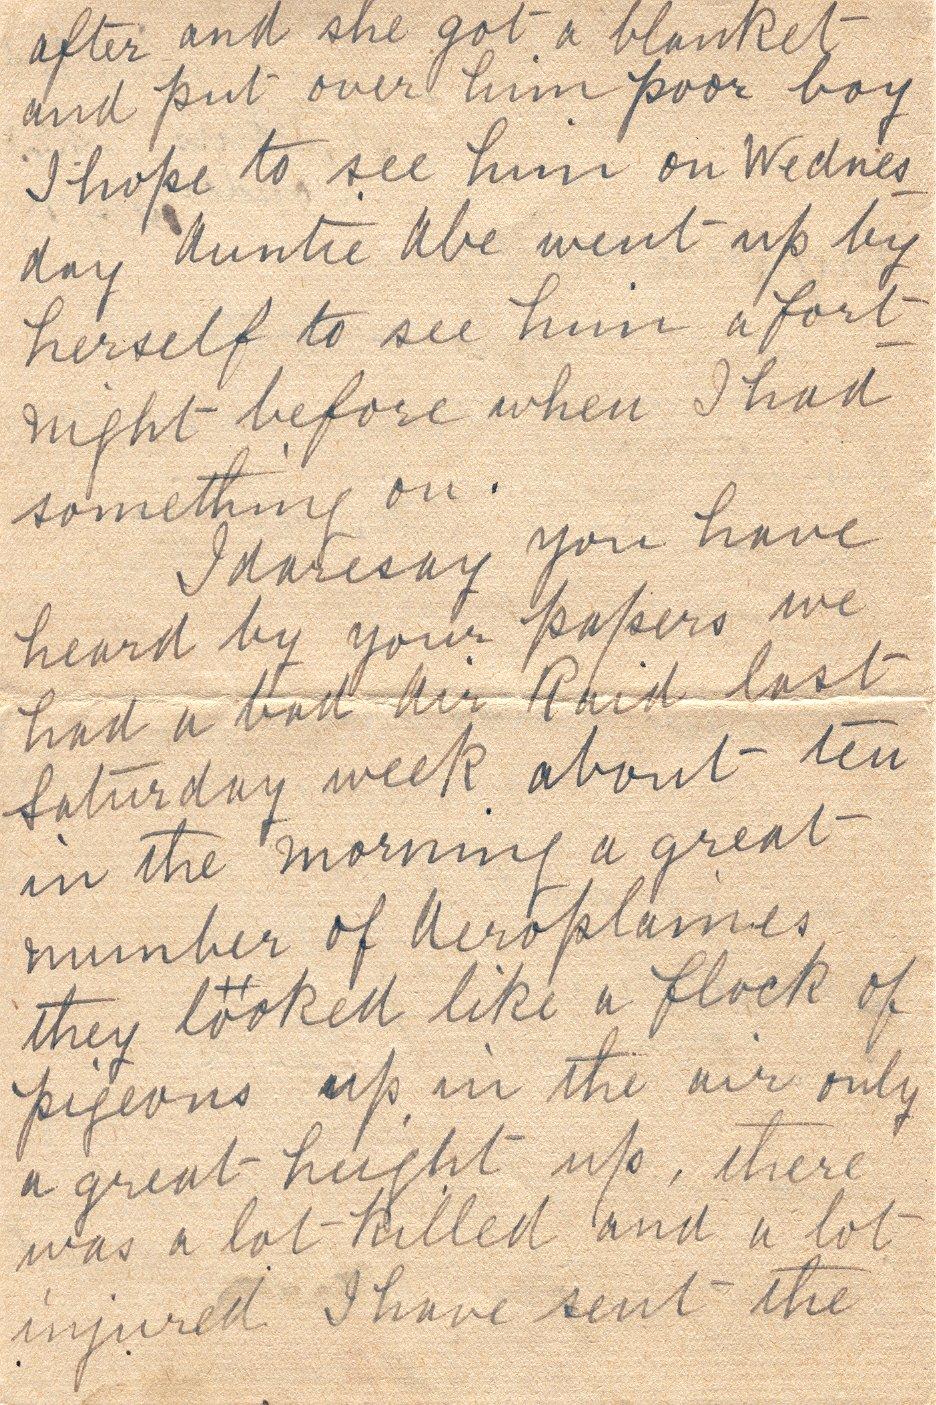 after and she got a blanket
and put over him poor boy
I hope to see him on Wednes
day Auntie Abe went up by
herself to see him a fort
night before when I had
something on.
I daresay you have
heard by your papers we
had a bad Air Raid last
Saturday week about ten
in the morning a great
number of Aeroplaines
they looked like a flock of
pigeons up in the air only
a great height up, there
was a lot killed and a lot
injured I have sent the